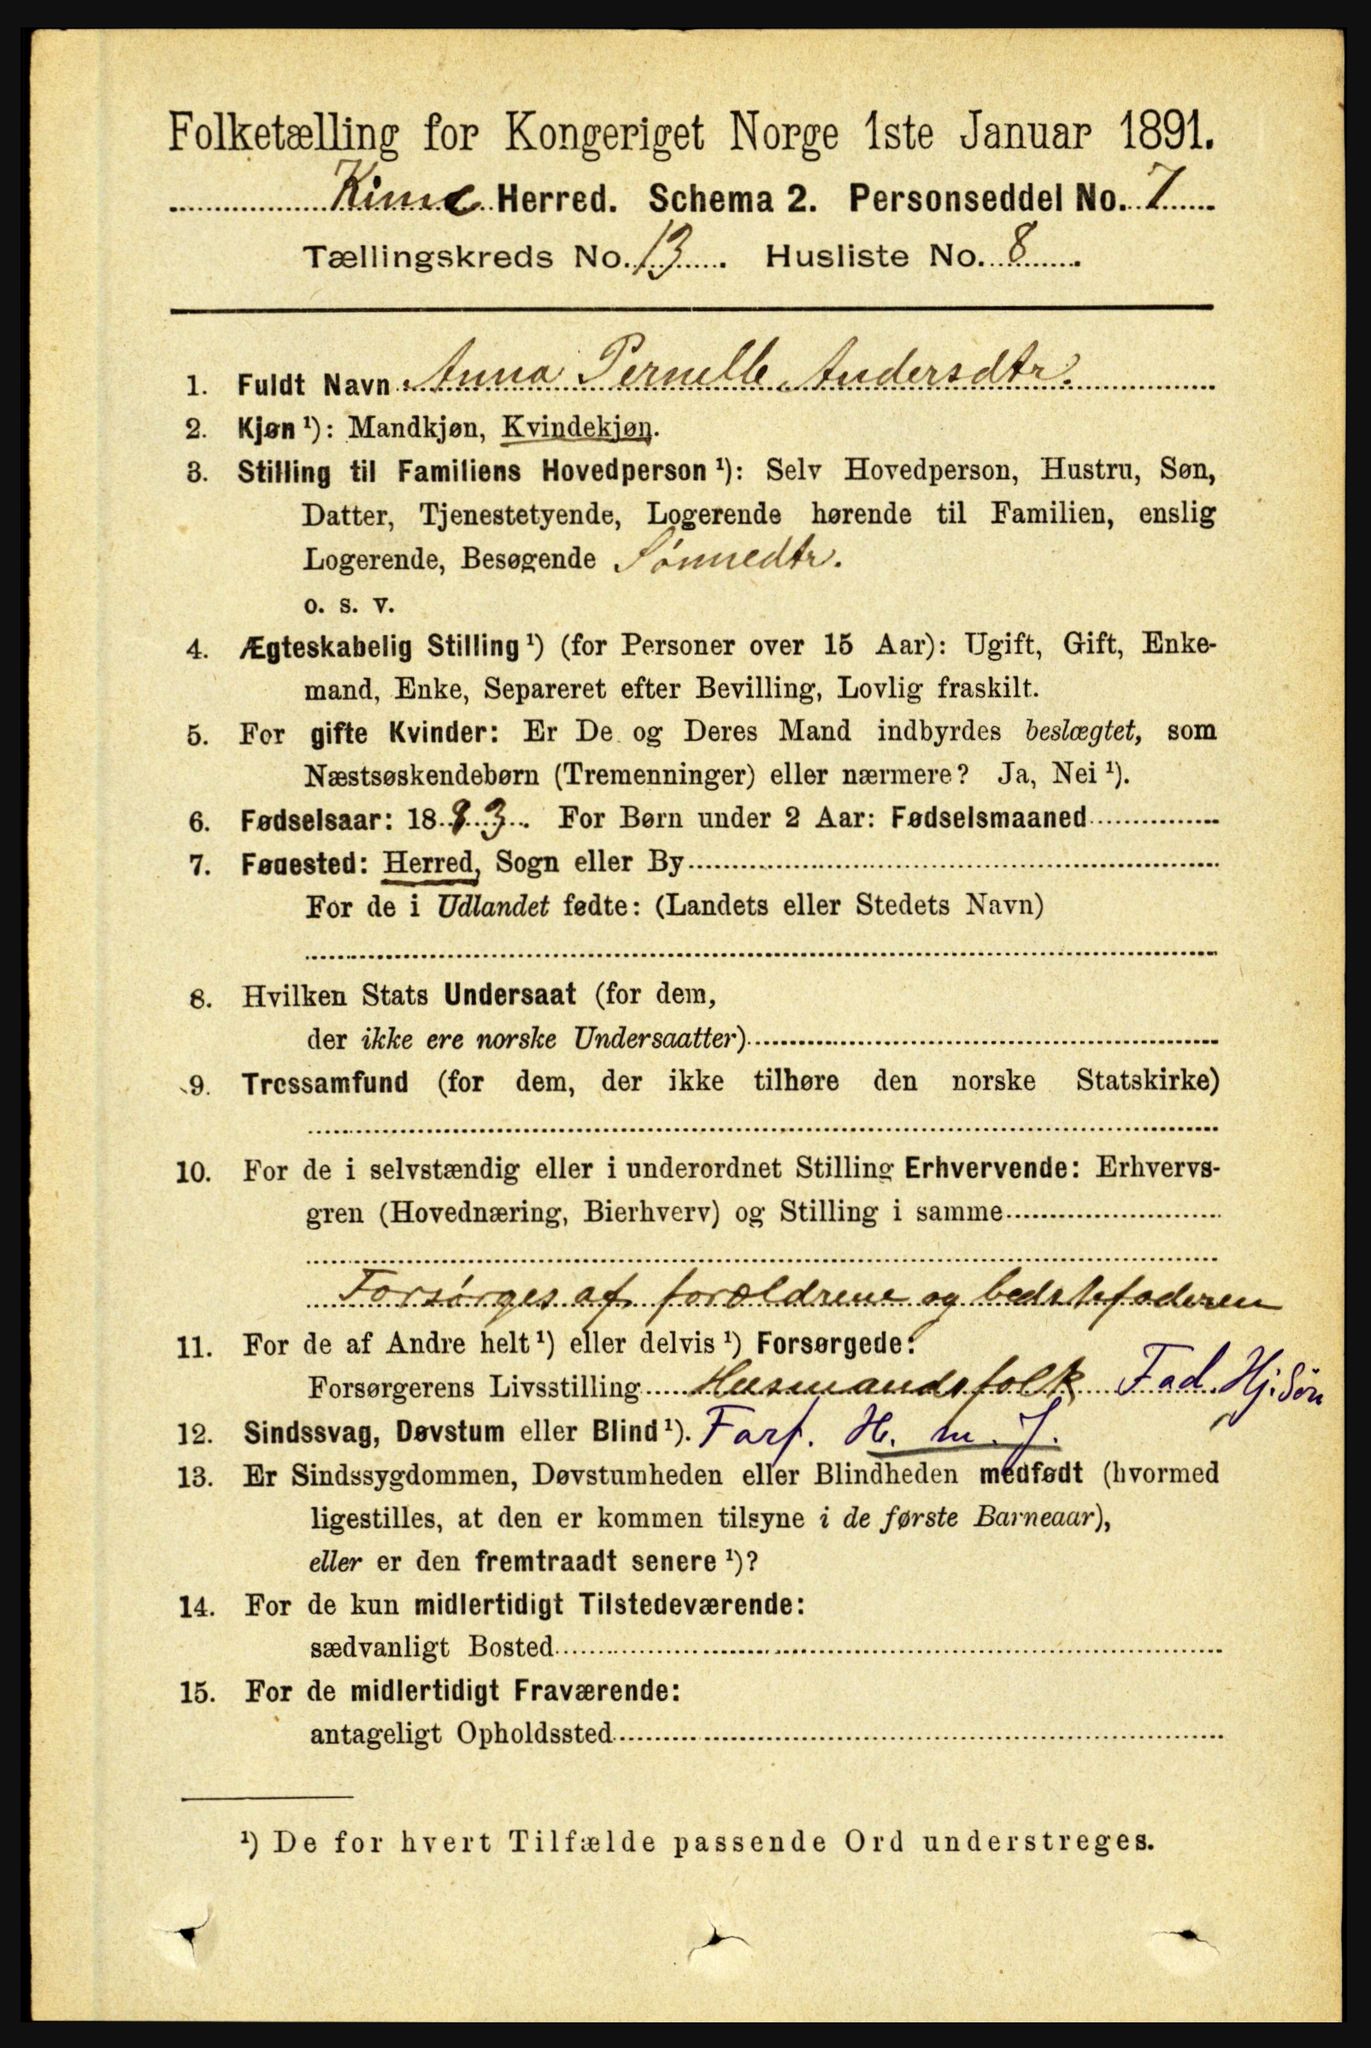 Folketælling for Kongeriget Norge 1ste Januar 1891.
Kinn Herred. Schema 2. Personseddel No. 7
Tællingskreds No. 13. Husliste No. 8.
1. Fuldt Navn Anna Pernelle Andersdtr.
2. Kjøn ¹): Mandkjøn, Kvindekjøn.
3. Stilling til Familiens Hovedperson ¹): Selv Hovedperson, Hustru, Søn,
Datter, Tjenestetyende, Logerende hørende til Familien, enslig
Logerende, Besøgende Sønnedtr.
o. s. v.
4. Ægteskabelig Stilling ¹) (for Personer over 15 Aar): Ugift, Gift, Enke-
mand, Enke, Separeret efter Bevilling, Lovlig fraskilt.
5. For gifte Kvinder: Er De og Deres Mand indbyrdes beslægtet, som
Næstsøskendebørn (Tremenninger) eller nærmere? Ja, Nei ¹).
6. Fødselsaar: 1883. For Børn under 2 Aar: Fødselsmaaned
7. Fødested: Herred, Sogn eller By
For de i Udlandet fødte: (Landets eller Stedets Navn)
8. Hvilken Stats Undersaat (for dem,
der ikke ere norske Undersaatter)
9. Trossamfund (for dem, der ikke tilhøre den norske Statskirke)
10. For de i selvstændig eller i underordnet Stilling Erhvervende: Erhvervs-
gren (Hovednæring, Bierhverv) og Stilling i samme
Forsørges af forældrene og bedstefaderen
11. For de af Andre helt ¹) eller delvis ¹) Forsørgede:
Forsørgerens Livsstilling Husmandsfolk Fad. Hj. Søn
12. Sindssvag, Døvstum eller Blind ¹). Farf. H. m. J.
13. Er Sindssygdommen, Døvstumheden eller Blindheden medfødt (hvormed
ligestilles, at den er kommen tilsyne i de første Barneaar),
eller er den fremtraadt senere ¹)?
14. For de kun midlertidigt Tilstedeværende:
sædvanligt Bosted
15. For de midlertidigt Fraværende:
antageligt Opholdssted
¹) De for hvert Tilfælde passende Ord understreges.